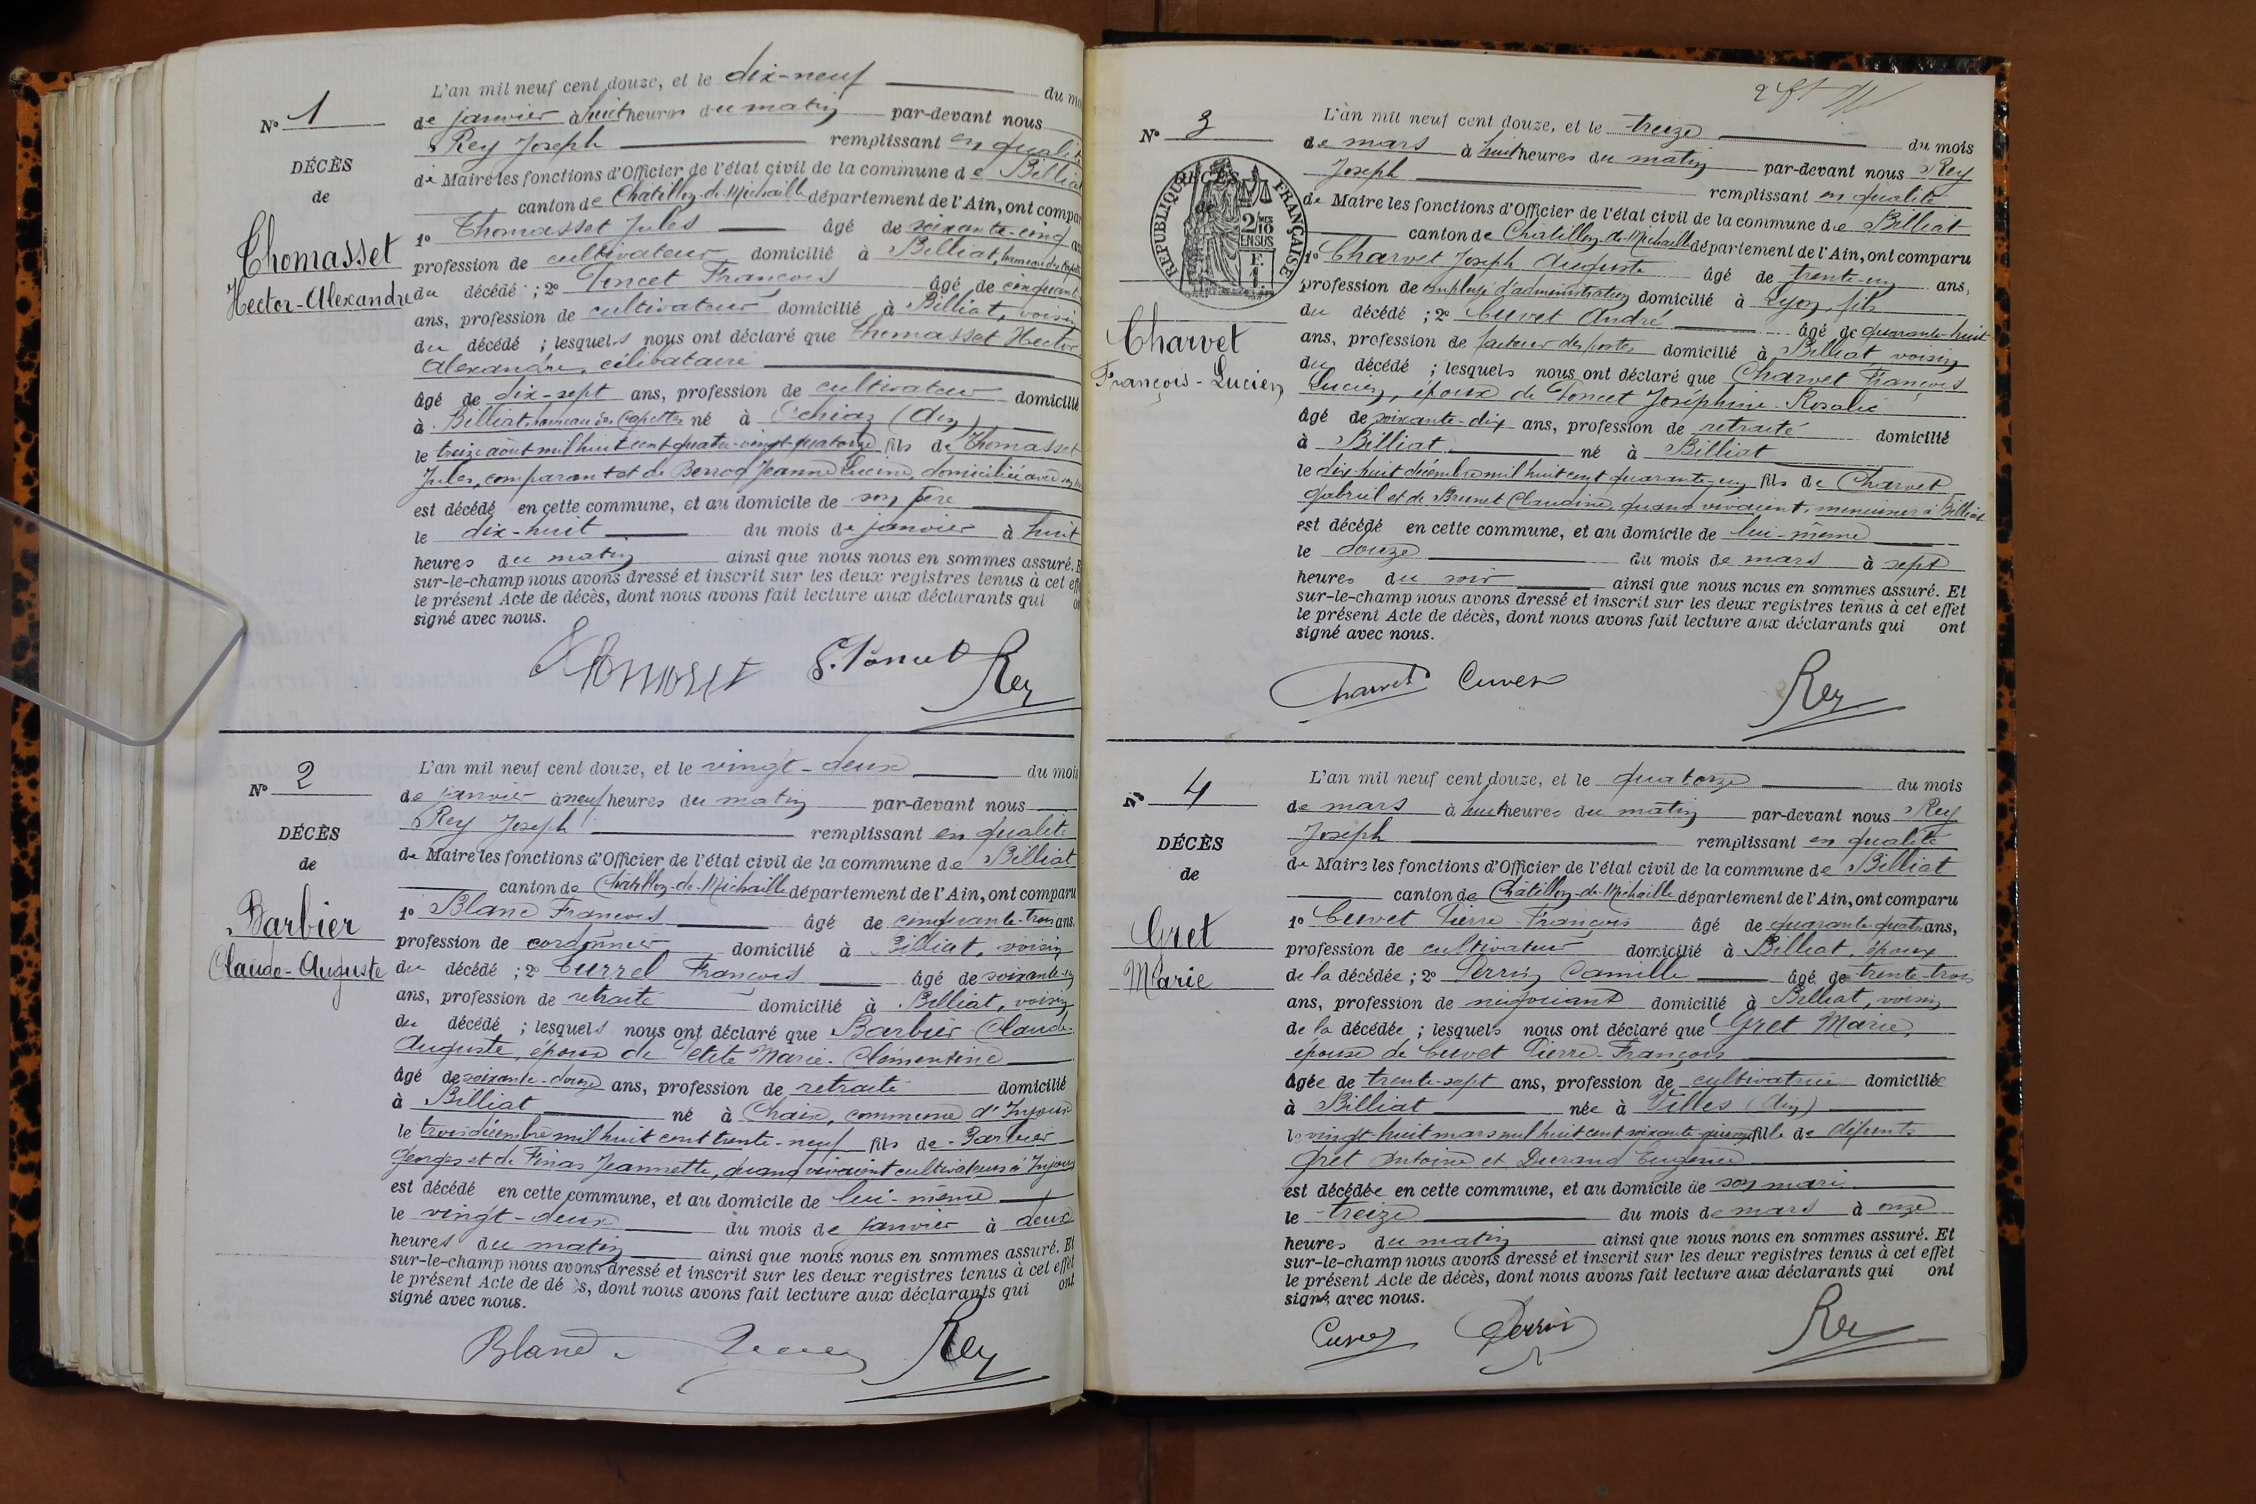 N° 1
DÉCÈS
de
Thomasset
Hector-Alexandre
L'an mil neuf cent douze, et le dix-neuf du mo
de janvier à huit heures du matin par-devant nous
Rey Joseph remplissant en qualité
de Maire les fonctions d'Officier de l'état civil de la commune de Billiat
canton de Châtillon-de-Michaille département de l'Ain, ont compar
1° Thomasset Jules âgé de soixante-cinq an
profession de cultivateur domicilié à Billiat, hameau des
du décédé ; 2° Poncet François âgé de cinquante
ans, profession de cultivateur domicilié à Billiat, voisin
du décédé ; lesquels nous ont déclaré que Thomasset Hector
Alexandre, célibataire
âgé de dix-sept ans, profession de cultivateur domicilié
à Billiat, hameau des né à Ochiaz (Ain)
le treize août mil huit cent quatre-vingt-quatorze fils de Thomasset
Jules, comparant et de Jeanne domiciliée avec
est décédé en cette commune, et au domicile de son père
le dix-huit du mois de janvier à huit
heures du matin ainsi que nous nous en sommes assuré. E
sur-le-champ nous avons dressé et inscrit sur les deux registres tenus à cet eff
le présent Acte de décès, dont nous avons fait lecture aux déclarants qui on
signé avec nous.
Rey
N° 2
DÉCÈS
de
Barbier
Claude-Auguste
L'an mil neuf cent douze, et le vingt-deux du mois
de janvier à neuf heures du matin par-devant nous
Rey Joseph remplissant en qualité
de Maire les fonctions d'Officier de l'état civil de la commune de Billiat
canton de Châtillon-de-Michaille département de l'Ain, ont comparu
1° Blanc François âgé de cinquante-trois ans
profession de cordonnier domicilié à Billiat, voisin
du décédé ; 2° Turrel François âgé de soixante-un
ans, profession de retraité domicilié à Billiat, voisin
du décédé ; lesquels nous ont déclaré que Barbier Claude-
Auguste, époux de Petite Marie-Clémentine
âgé de soixante-douze ans, profession de retraité domicilié
à Billiat né à Chaix, commune d'Injoux
le trois décembre mil huit cent trente-neuf fils de Barbier
Georges et de Finas Jeannette, quand vivaient cultivateurs à Injoux
est décédé en cette commune, et au domicile de lui-même
le vingt-deux du mois de janvier à deux
heures du matin ainsi que nous nous en sommes assuré. Et
sur-le-champ nous avons dressé et inscrit sur les deux registres tenus à cet effet
le présent Acte de décès, dont nous avons fait lecture aux déclarants qui ont
signé avec nous.
Blanc Rey
N° 3
DÉCÈS
de
RÉPUBLIQUE FRANÇAISE
2/10
EN SUS
Charvet
François-Lucien
L'an mil neuf cent douze, et le treize du mois
de mars à huit heures du matin par-devant nous Rey
Joseph remplissant en qualité
de Maire les fonctions d'Officier de l'état civil de la commune de Billiat
canton de Châtillon-de-Michaille département de l'Ain, ont comparu
1° Charvet Joseph Auguste âgé de trente-un ans,
profession de employé d'administration domicilié à Lyon, fils
du décédé ; 2° Cuvet André âgé de quarante-huit
ans, profession de facteur des postes domicilié à Billiat voisin
du décédé ; lesquels nous ont déclaré que Charvet François
Lucien, époux de Poncet Joséphine-Rosalie
âgé de soixante-dix ans, profession de retraité domicilié
à Billiat né à Billiat
le dix-huit décembre mil huit cent quarante-un fils de Charvet
Gabriel et de Brunet Claudine, quand vivaient, menuisiers à Billiat
est décédé en cette commune, et au domicile de lui-même
le douze du mois de mars à sept
heures du soir ainsi que nous nous en sommes assuré. Et
sur-le-champ nous avons dressé et inscrit sur les deux registres tenus à cet effet
le présent Acte de décès, dont nous avons fait lecture aux déclarants qui ont
signé avec nous.
Charvet Cuvet Rey
N° 4
DÉCÈS
de
Gret
Marie
L'an mil neuf cent douze, et le quatorze du mois
de mars à huit heures du matin par-devant nous Rey
Joseph remplissant en qualité
de Maire les fonctions d'Officier de l'état civil de la commune de Billiat
canton de Châtillon-de-Michaille département de l'Ain, ont comparu
1° Cuvet Pierre-François âgé de quarante-quatre ans,
profession de cultivateur domicilié à Billiat, époux
de la décédée ; 2° Perrin Camille âgé de trente-trois
ans, profession de négociant domicilié à Billiat, voisin
de la décédée ; lesquels nous ont déclaré que Gret Marie,
épouse de Cuvet Pierre-François
âgée de trente-sept ans, profession de cultivatrice domiciliée
à Billiat née à Villes (Ain)
le vingt-huit mars mil huit cent soixante-quinze fille de défunts
Gret Antoine et Durand Eugénie
est décédée en cette commune, et au domicile de son mari
le treize du mois de mars à onze
heures du matin ainsi que nous nous en sommes assuré. Et
sur-le-champ nous avons dressé et inscrit sur les deux registres tenus à cet effet
le présent Acte de décès, dont nous avons fait lecture aux déclarants qui ont
signé avec nous.
Cuvet Perrin Rey